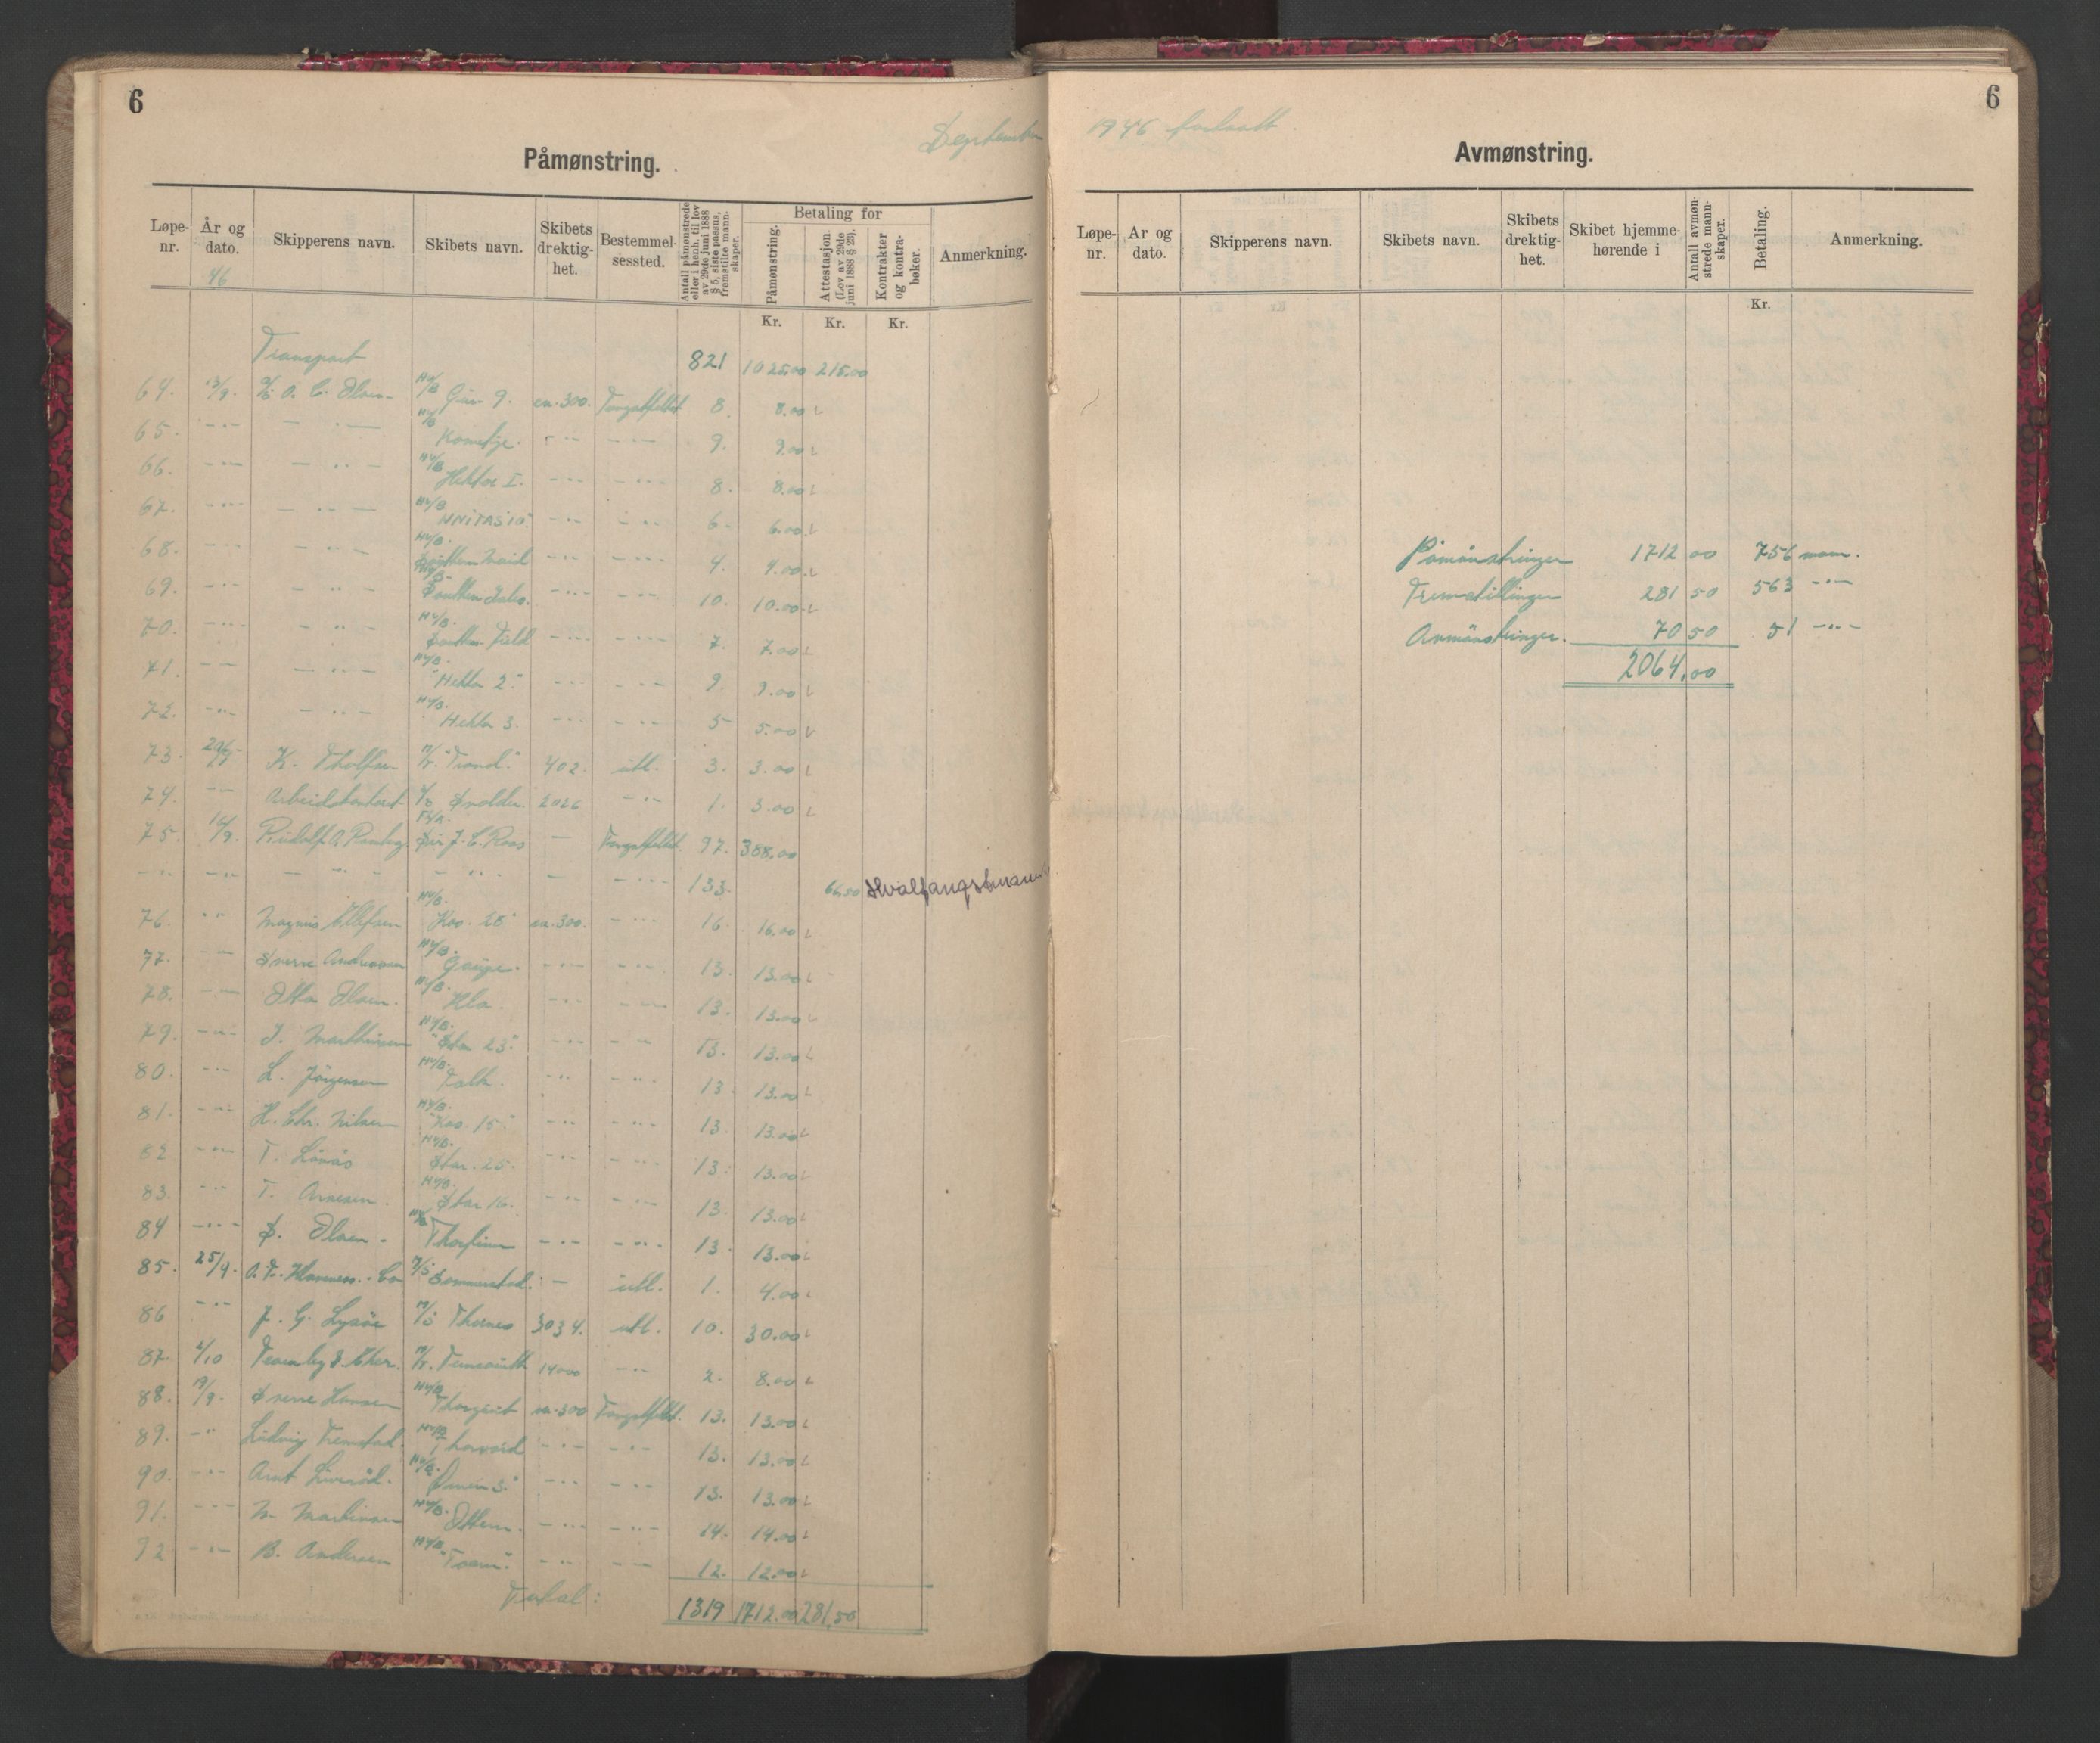 6
September
Påmønstring.
Løpe-nr.
År og dato.
46
Skipperens navn.
Skibets navn.
Skibets drektig-het.
Bestemmel-sessted.
Antall påmønstrede eller i henh. til lov av 29de juni 1888 § 5, siste passus, fremstilte mann-skaper.
Betaling for
Påmønstring.
Attestasjon (Lov av 29de juni 1888 § 25).
Kontrakter og kontra-bøker.
Anmerkning.
Kr. Kr. Kr.
Transport 821 1025.00 215.00
64. 13/9. O. C. Olsen Hv/B 9. ca. 300. Fangstfeltet 8. 8.00
65. -"- -"- Hv/B -"- -"- 9. 9.00
66. -"- -"- Hv/B Hektor I. -"- -"- 8. 8.00
67. -"- -"- Hv/B UNITAS 10" -"- -"- 6. 6.00
68. -"- -"- Hv/B. Southern Maid -"- -"- 4. 4.00
69. -"- -"- Southern -"- -"- 10. 10.00
70. -"- -"- Hv/B. Southern -"- -"- 7. 7.00
71. -"- -"- Hv/B. "Hektor 2." -"- -"- 9. 9.00
72. -"- -"- Hv/B. Hektor 3. -"- -"- 5 5.00
73. K. Tholfsen "Trond." 402. utl. 3. 3.00
74. -"- Arbeidskontoret Snolda 2026 -"- 1. 3.00
75. 16/9. Rudolf A. Sir J. C. Ross — Fangstfeltet. 97. 388.00
-"- -"- -"- -"- — -"- 133. 66.50 Hvalfangstmann
76. -"- Magnus Ellefsen Hv/B. Kos. 28" ca. 300. -"- 16. 16.00
77. -"- Sverre Andersen Hv/B. Gaupe. -"- -"- 13. 13.00
78. -"- Otto Olsen. Hv/B. Klo. -"- -"- 13. 13.00
79. -"- J. Marthinsen Hv/B. "Star 23." -"- -"- 13. 13.00
80. -"- L. Jörgensen Hv/B. Falk. -"- -"- 13 13.00
81. -"- H. Chr. Nilsen Hv/B. "Kos. 15" -"- -"- 13. 13.00
82 -"- T. Hv/B. Star. 25. -"- -"- 13. 13.00
83. -"- T. Arnesen. Hv/B. Star 16. -"- -"- 13. 13.00
84 -"- S. Olsen. Thorfinn -"- -"- 13. 13.00
85. 25/9. A. F. Klaveness. Co M/S Sommerstad. — utl. 1. 4.00
86 -"- J. G. Lysöe M/S Thornes 3034. utl. 10. 30.00
87. 1/10 14000 -"- 2. 8.00
88. 19/9. Sverre Hansen Hv/B Thorgaut ca. 300 Fangstfeltet. 13. 13.00
89. -"- Ludvig Fremstad. Hv/B Thorvard -"- -"- 13. 13.00
90. -"- Arnt Hv/B. -"- -"- 13. 13.00
91. -"- M. Martinsen Hv/B. Ottern. -"- -"- 14. 14.00
92 -"- B. Andersen Hv/B. -"- -"- 12. 12.00
Total: 1319 1712.00 281,50
6
1946 fortsatt
Avmønstring.
Løpe-nr.
År og dato.
Skipperens navn.
Skibets navn.
Skibets drektig-het.
Skibet hjemme-hørende i
Antall avmøn-strede mann-skaper.
Betaling.
Anmerkning.
Kr.
Påmönstringer 1712 00 756 mann.
Fremstillinger 281 50 563 -"-
Avmönstringer. 70 50 51 -"-
2064,00